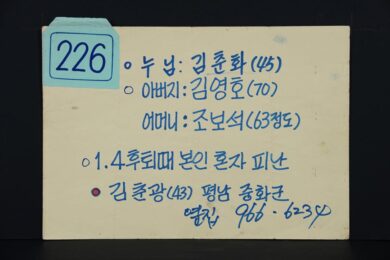 226
누님: 김춘화(45)
아버지: 김영호(70)
어머니: 조보석(63정도)
1.4후퇴때 본인 혼자 피난
김춘광(43) 평남 중화군
옆집 966-6234